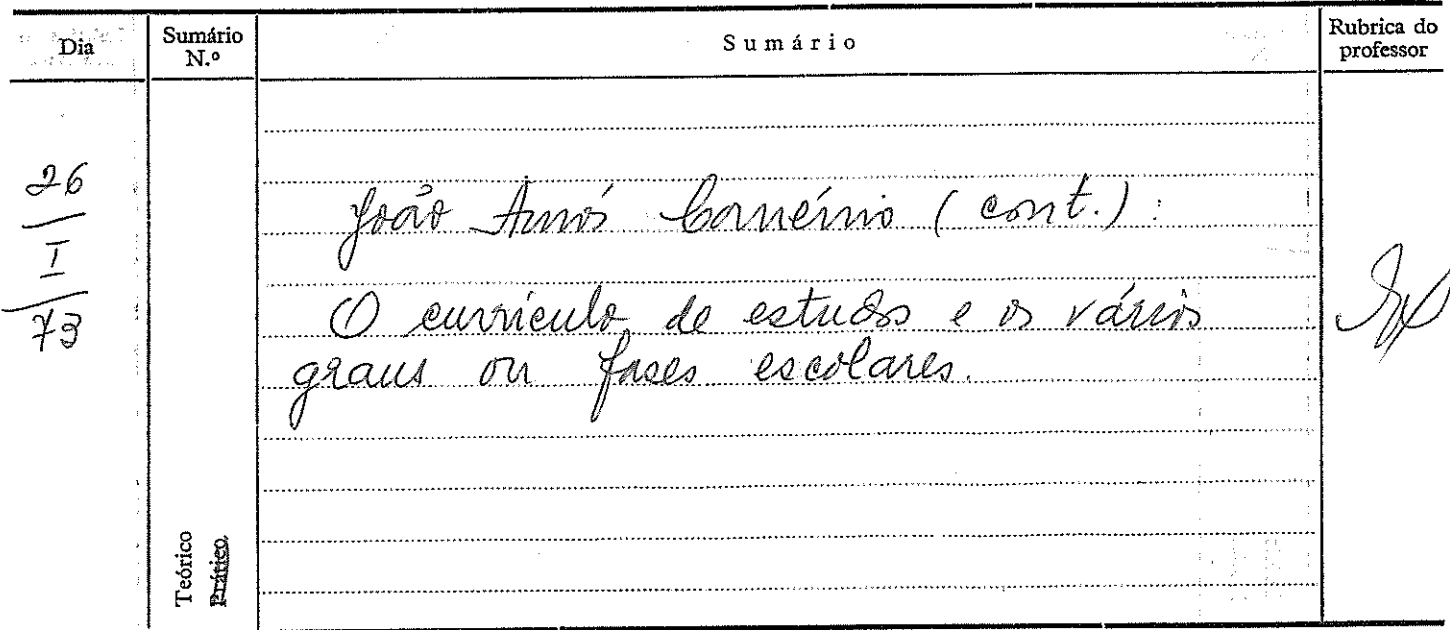 Dia
Sumário
N.º
Sumário
Rubrica do
professor
26
I
73
João Amós Coménio (cont.):
O currículo de estudos e os vários
graus ou fases escolares.
Teórico
Prático.